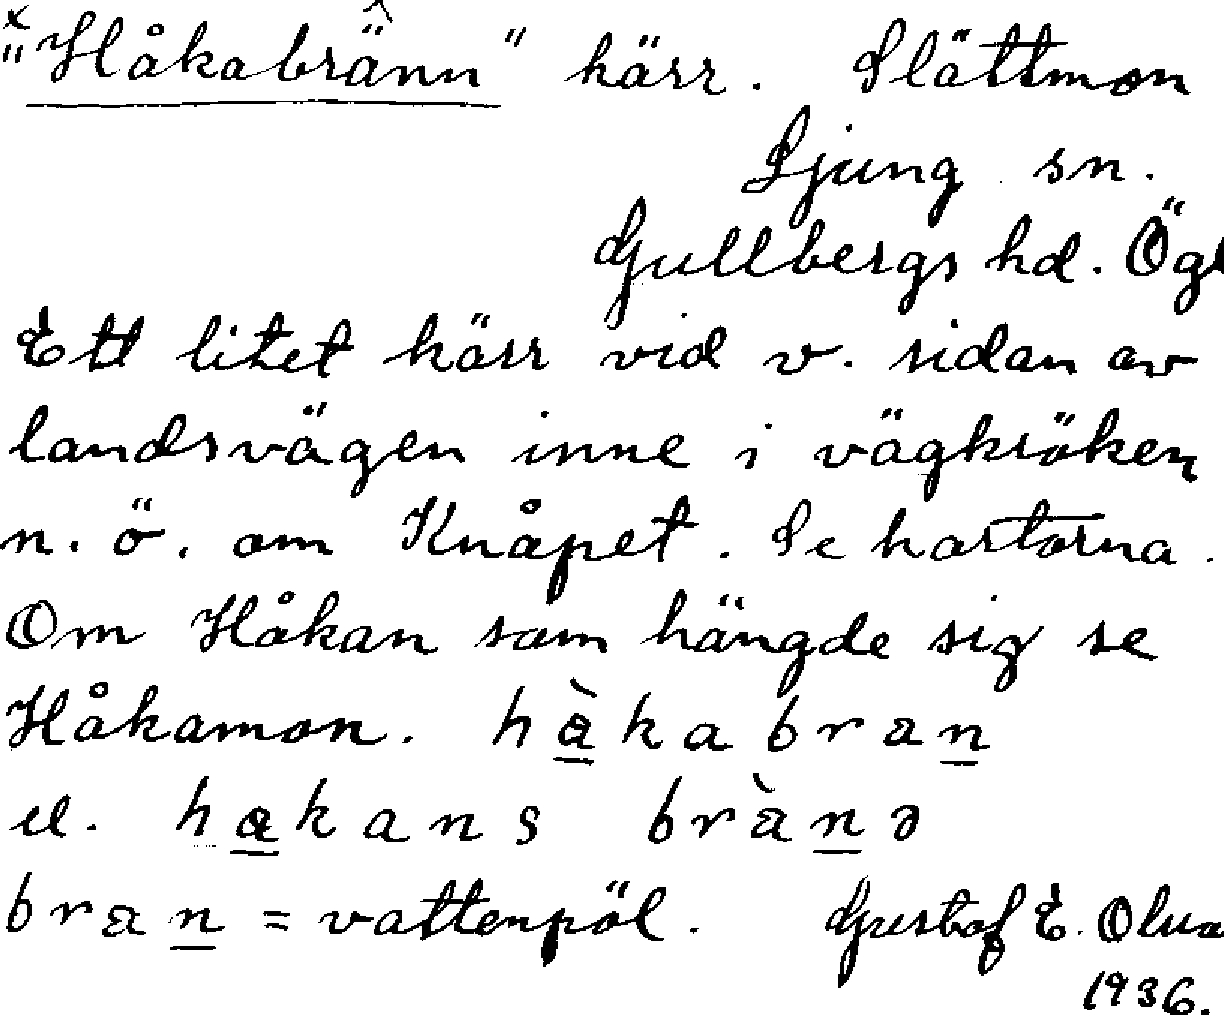 "Håkabränn" kärr. Slättmon
Ljung sn.
Gullbergs hd. Ögl
Ett litet kärr vid v. sidan av
landsvägen inne i vägkröken
n. ö. om Knåpet. Se kartorna.
Om Håkan som hängde sig se
Håkamon. hàkabran
el. hakans brànə
bran = vattenpöl. Gustaf E. Olua
1936.